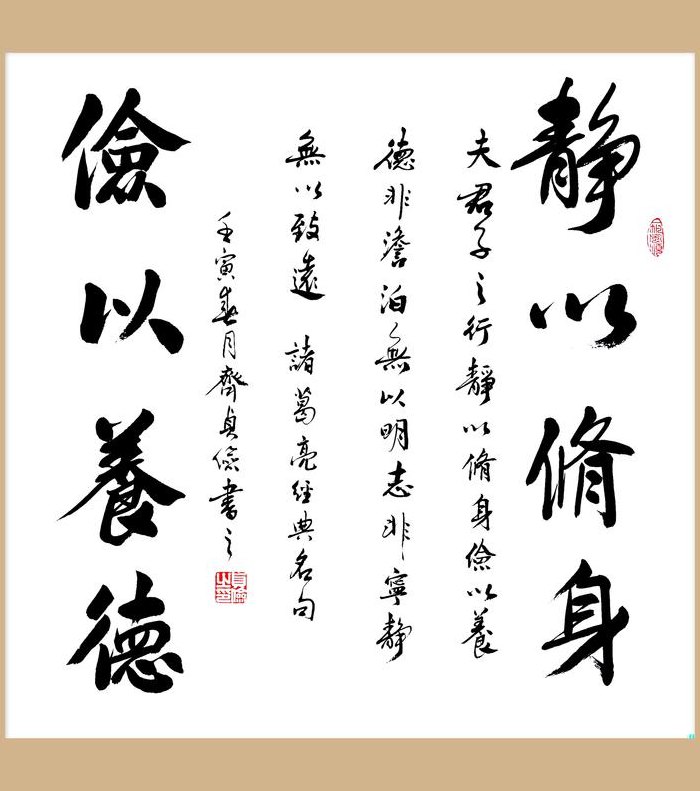 靜以脩身
夫君子之行靜以脩身儉以養
德非澹泊無以明志非寧靜
無以致遠 諸葛亮經典名句
壬寅春月齊貞儉書之
儉以養德